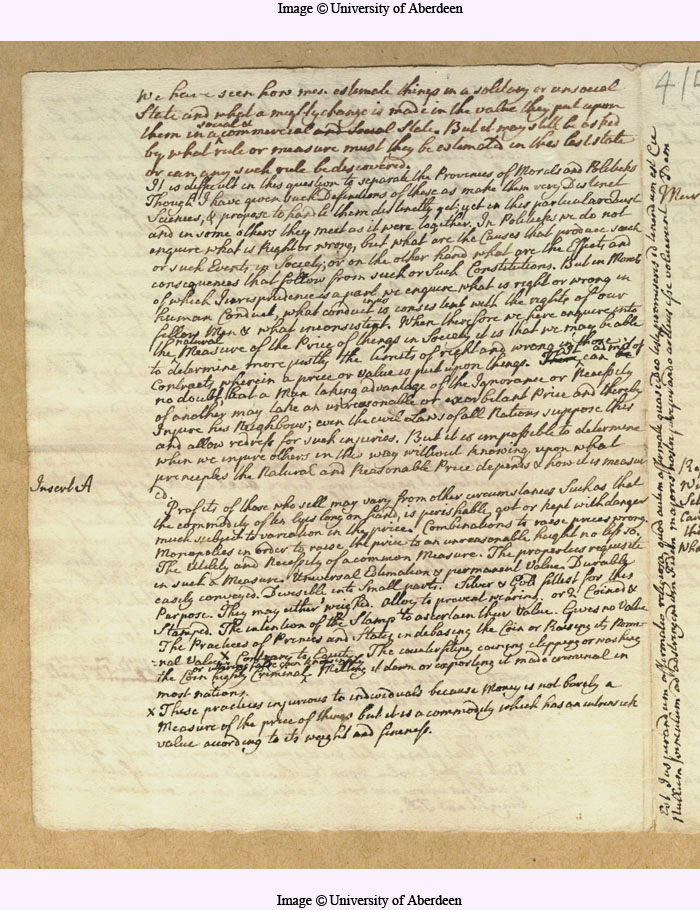 Image © University of Aberdeen
We have seen how men estimate things in a solitary or unsocial
State and what a mighty change is made in the value they put upon
them in a social & commercial and Social State. But it may still be asked
by what rule or measure must they be estimated in this last state
or can any such rule be discovered.
It is difficult in this question to separate the Provinces of Morals and Politicks
Though I have given such Definitions of these as make them very Distinct
Sciences, & propose to handle them distinctly yet in this particular Just
and in some others they meet as it were together. In Politicks we do not
enquire what is Right or wrong, but what are the Causes that produce such
or such Events in Society; or on the other hand what are the Effects and
consequences that follow from such or such Constitutions. But in Morals
of which Jurisprudence is a part, we enquire what is right or wrong in
human Conduct, what conduct is consistent with the rights of our
fellow Men & what inconsistent. When therefore we have enquire into
the natural Measure of the Price of things in Society it is that we may be able
to determine more justly the limits of right and wrong in those
Contracts wherein a price or value is put upon things. There can be
no doubt that a Man taking advantage of the Ignorance or Necessity
of another may take an unreasonable or exorbitant Price and thereby
Injure his Neighbour; even the civil Laws of all Nations suppose this
and allow redress for such injuries. But it is impossible to determine
when we injure others in this way without knowing upon what
principles the Natural and Reasonable Price depends & how it is measur
ed.
Insert A
Profits of those who sell may vary from other circumstances Such as that
the commodity often lyes long on hand, is perishable, got or kept with danger
much subject to variation in the price. Combinations to raise prices wrong.
Monopolies in order to raise the price to an unreasonable height no less so.
The Utility and Necessity of a common Measure. The properties requisite
in such a Measure. Universal Estimation & permanent Value. Durable
easily conveyed. Divisible into Small parts. Silver & Gold fittest for this
Purpose. They may either weighed. alloy to prevent wearing. or 2 Coined &
Stamped. The intention of the Stamp to ascertain their Value. Gives no Value
The Practices of Princes and States in debasing the Coin or Raising its Nomi
-nal Value x Contrary to Equity. The counterfeiting coining clipping or washing
the Coin highly Criminal. Melting it down or exporting it made criminal in
most nations.
x These practices injurious to individuals because Money is not barely a
Measure of the price of things but it is a commodity which has an intrinsick
value according to its weight and fineness.
4/
Mew
Est Jusjurandum affirmatio religiosa, quod autem affirmate quasi deo teste promiseris id tenendum est Cic
Nullum vinculum ad adstringendam fidem majores nostri jurejurando arctius esse voluerunt Idem
Image © University of Aberdeen